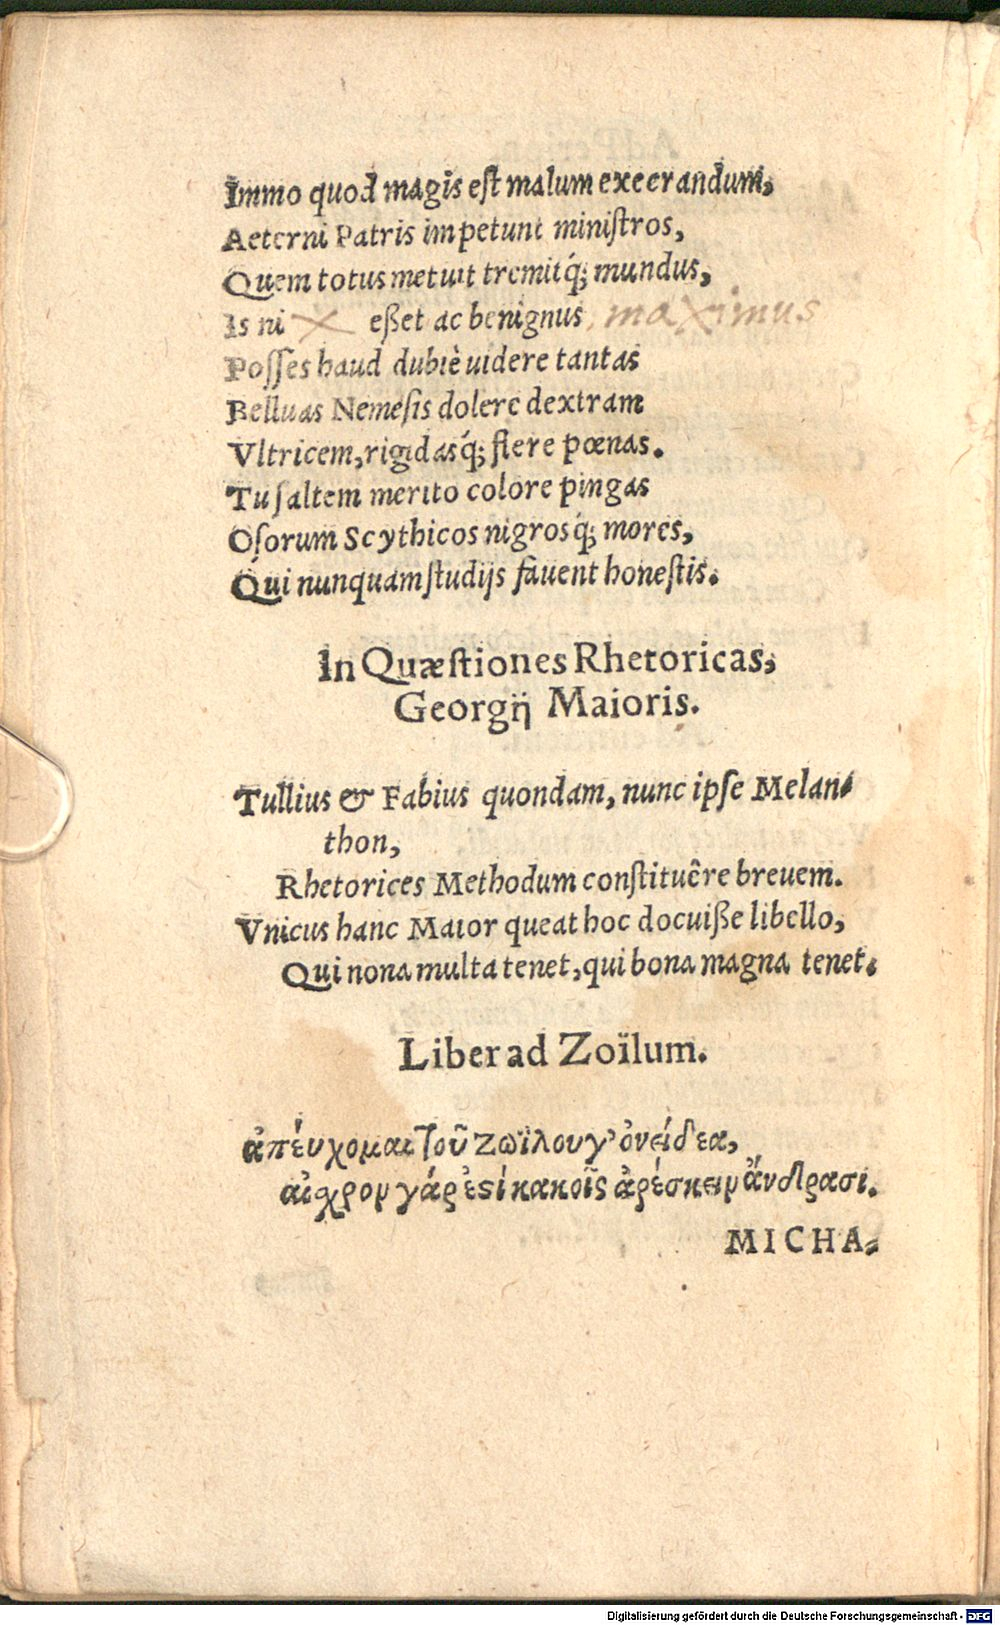 Immo quod magis est malum execrandum,
Aeterni Patris impetunt ministros,
Quem totus metuit tremitq́; mundus,
Is ni eßet ac benignus, maximus
Posses haud dubiè uidere tantas
Belluas Nemesis dolere dextram
Vltricem, rigidasq́; flere pœnas.
Tu saltem merito colore pingas
Osorum Scythicos nigrosq́; mores,
Qui nunquam studijs fauent honestis.
In Quæstiones Rhetoricas,
Georgij Maioris.
Tullius & Fabius quondam, nunc ipse Melan-
thon,
Rhetorices Methodum constituêre breuem.
Vnicus hanc Maior queat hoc docuiße libello,
Qui nona multa tenet, qui bona magna tenet.
Liber ad Zoïlum.
ἀπέυχομαι τοῦ ζωΐλου γ’ ὀνείδεα,
αἰχρον γάρ ἐςὶ κακοῖς ἀρέσκειν ἄνδρασι.
MICHA-
Digitalisierung gefördert durch die Deutsche Forschungsgemeinschaft - DFG